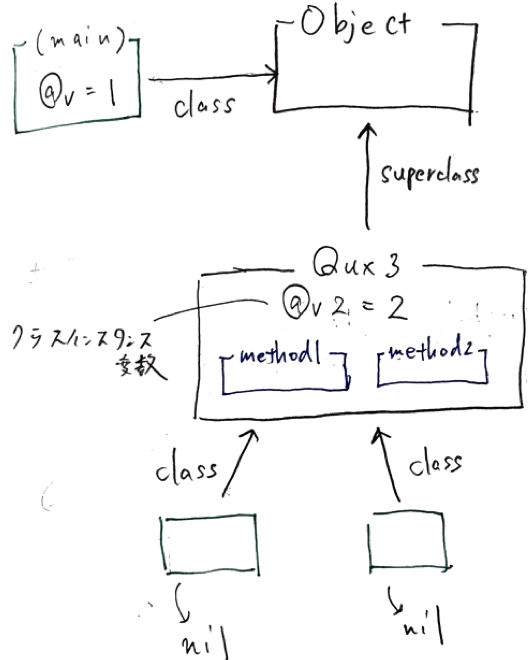 (main)
@v = 1
Object
class
superclass
Qux3
@v2 = 2
クラスインスタンス
変数
method1
method2
class
class
nil
nil